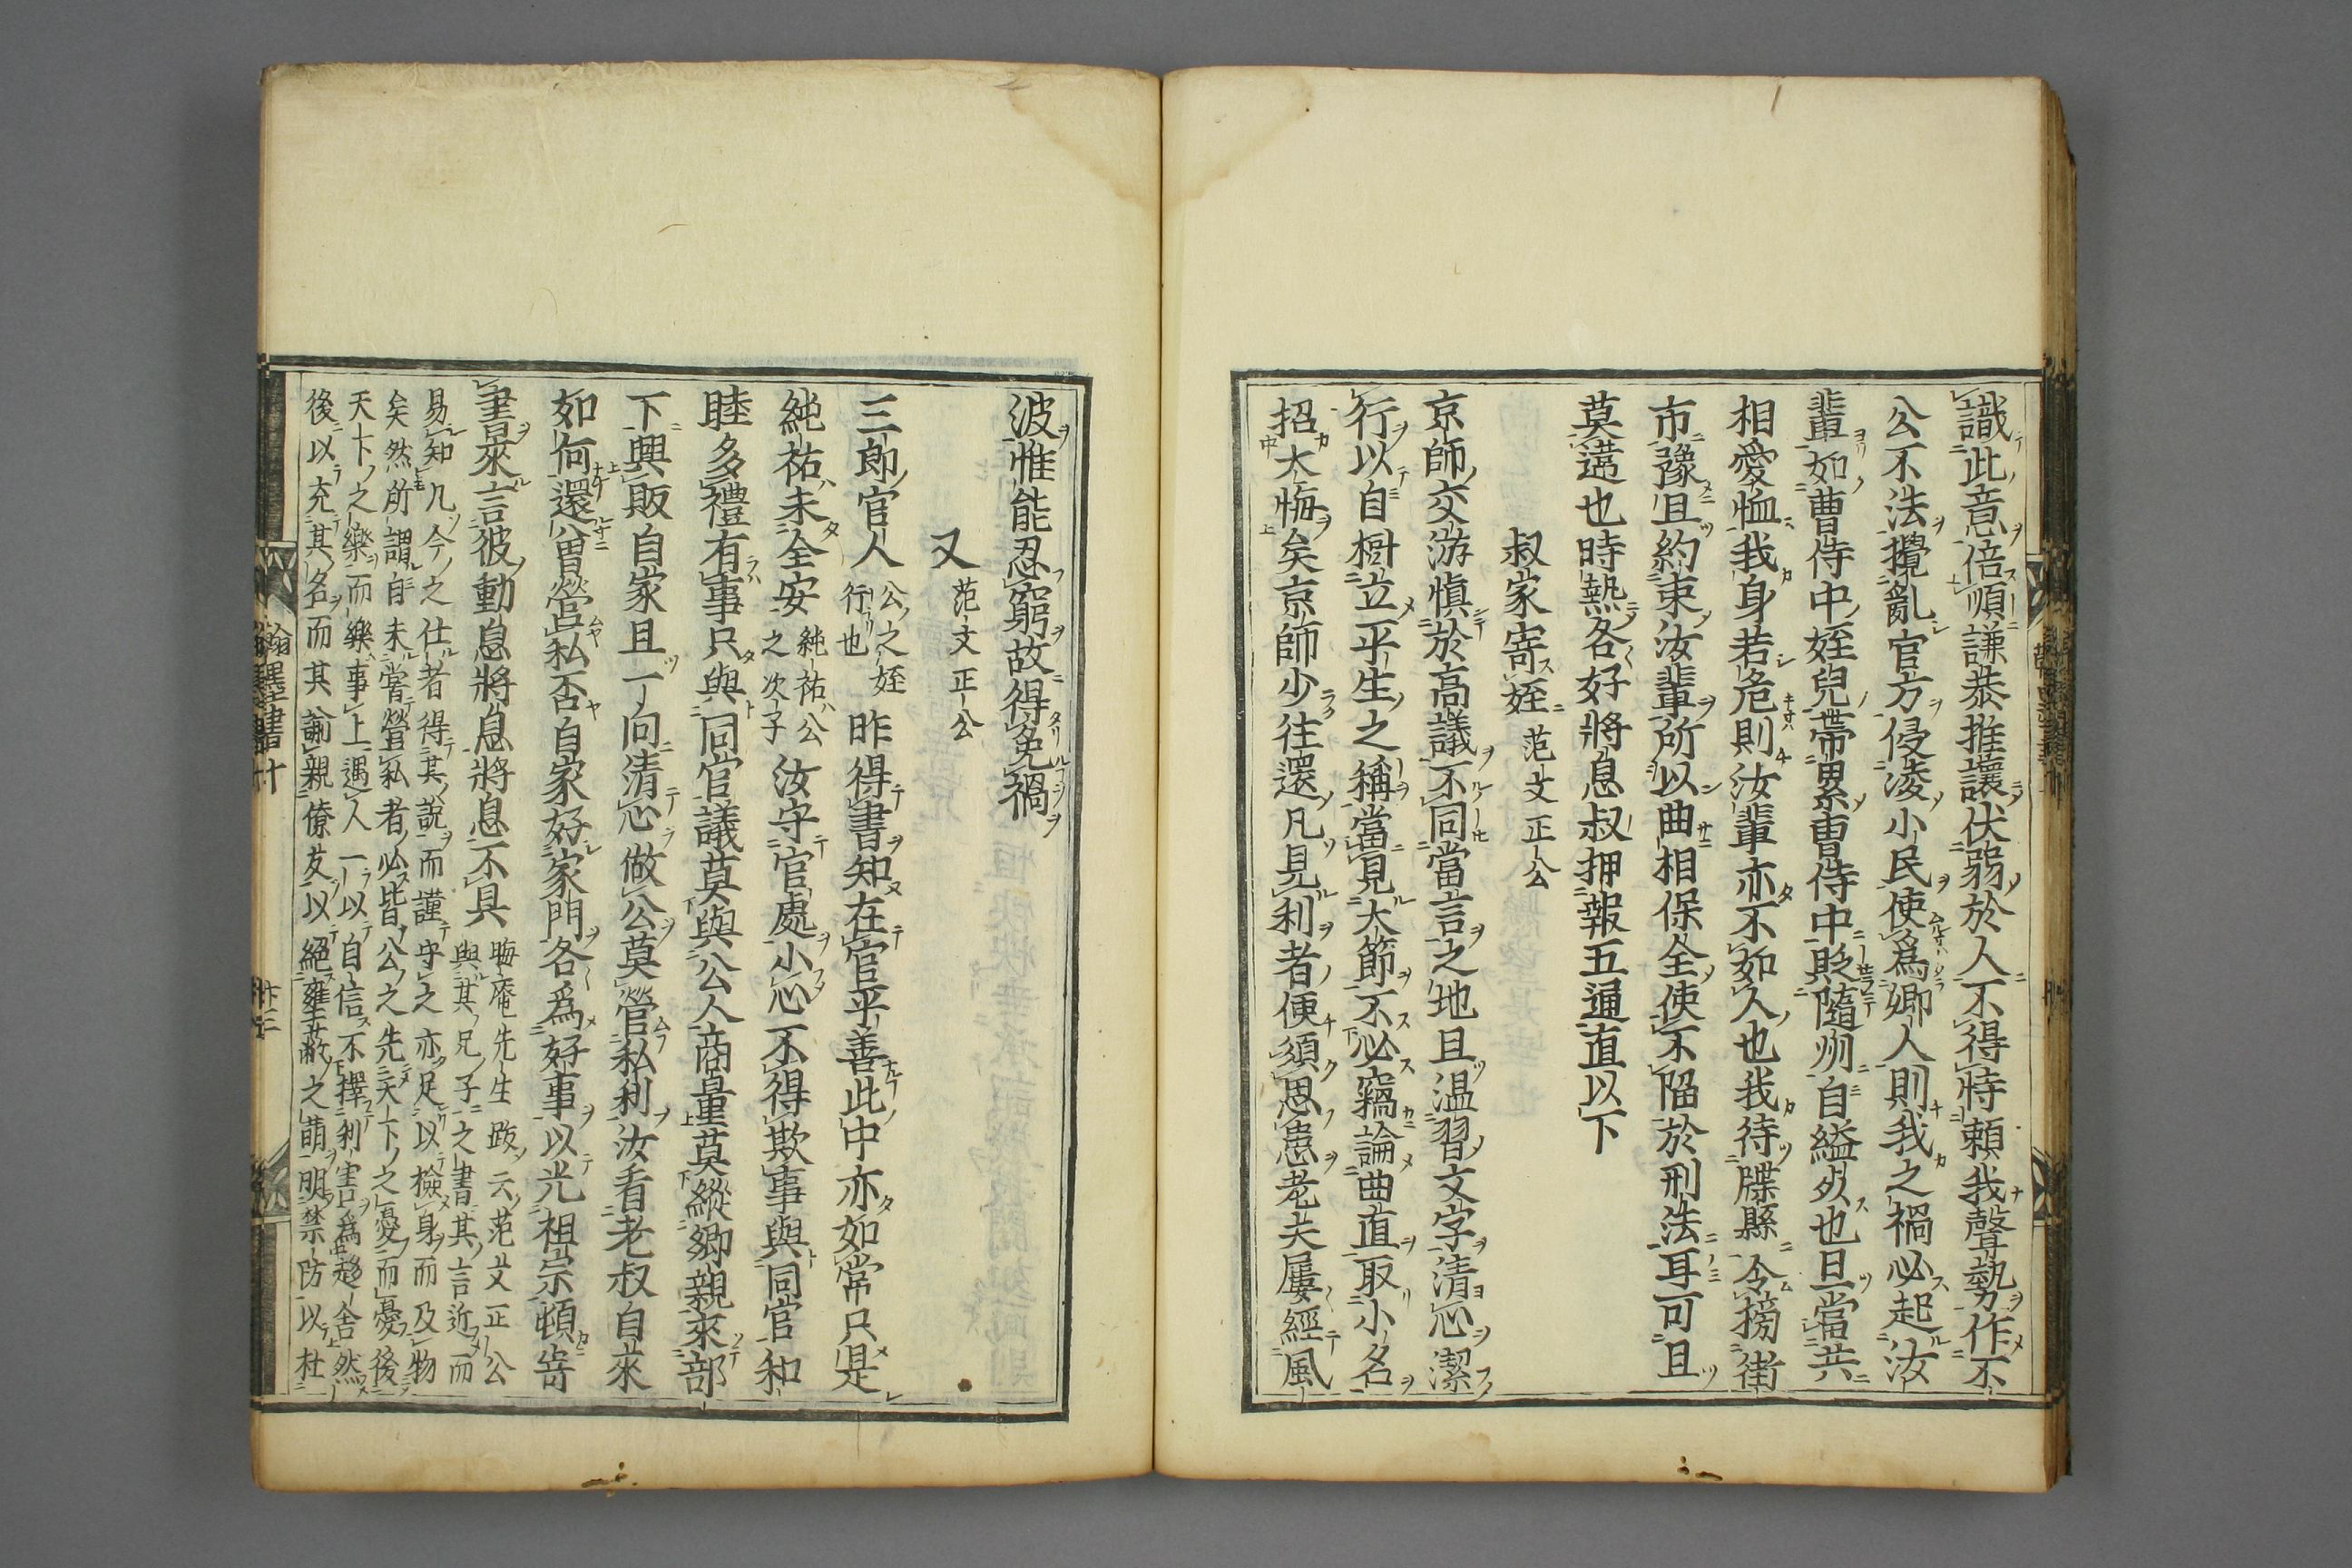 識此意倍順謙恭推讓伏弱於人不得恃賴我聲勢作不
公不法攪亂官方侵凌小民使爲鄉人則我之禍必起汝
輩如曹侍中姪兒帶累曹侍中貶隨州自縊歿也旦當共
相愛恤我身若危則汝輩亦不如人也我待牒縣令搒街
市豫且約束汝輩所以曲相保全使不陷於刑法耳可且
莫邁也時熱各好將息叔押報五通直以下
叔家寄姪 范文正公
京師交游愼於高議不同當言之地且温習文字清心潔
行以自樹立平生之稱當見大節不必竊論曲直取小名
招大悔矣京師少往還凡見利者便須思患老夫屢經風
波惟能忍窮故得免禍
又 范文正公
三郎官人 公之姪行也 昨得書知在官平善此中亦如常只是
純祐未全安 純祐公之次子 汝守官處小心不得欺事與同官和
睦多禮有事只與同官議莫與公人商量莫縱鄉親來部
下興販自家且一向清心做公莫營私利汝看老叔自來
如何還曾營私否自家好家門各爲好事以光祖宗頓寄
書來言彼動息將息將息不具 晦庵先生跋云范文正公
與其兄子之書其言近而
易知凡今之仕者得其說而謹守之亦足以檢身而及物
矣然所謂自未嘗營私者必皆公之先天下之憂而憂後
天下之樂而樂事上遇人一以自信不擇利害爲趨舍然
後以充其名而其諭親僚友以絕壅蔽之萌明禁防以杜
翰墨書十